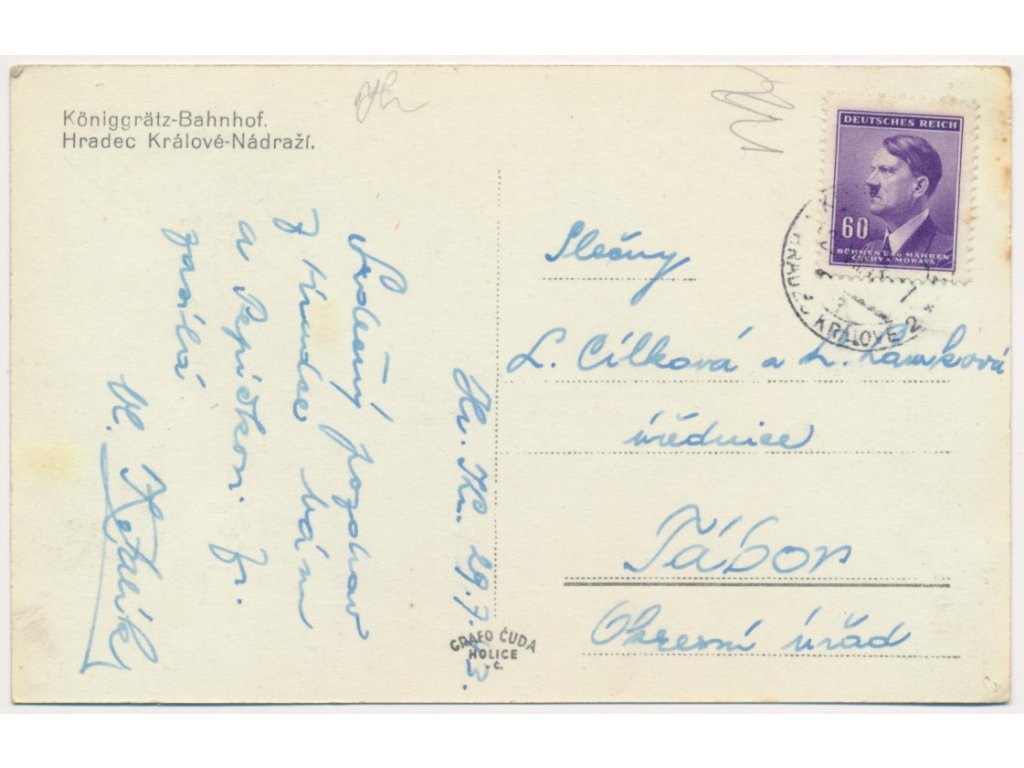 Königgrätz-Bahnhof.
Hradec Králové-Nádraží.
DEUTSCHES REICH
60
BÖHMEN UND MÄHREN
ČECHY A MORAVA
HRADEC KRÁLOVÉ 2
Slečny
L. Cílková a L.
úřednice
Tábor
Okresní úřad
Hr. Kr. 29.7.43.
Srdečný pozdrav
z Hradce Vám
a Pepičkovi Fr.
zasílá
Vl.
GRAFO ČUDA
HOLICE